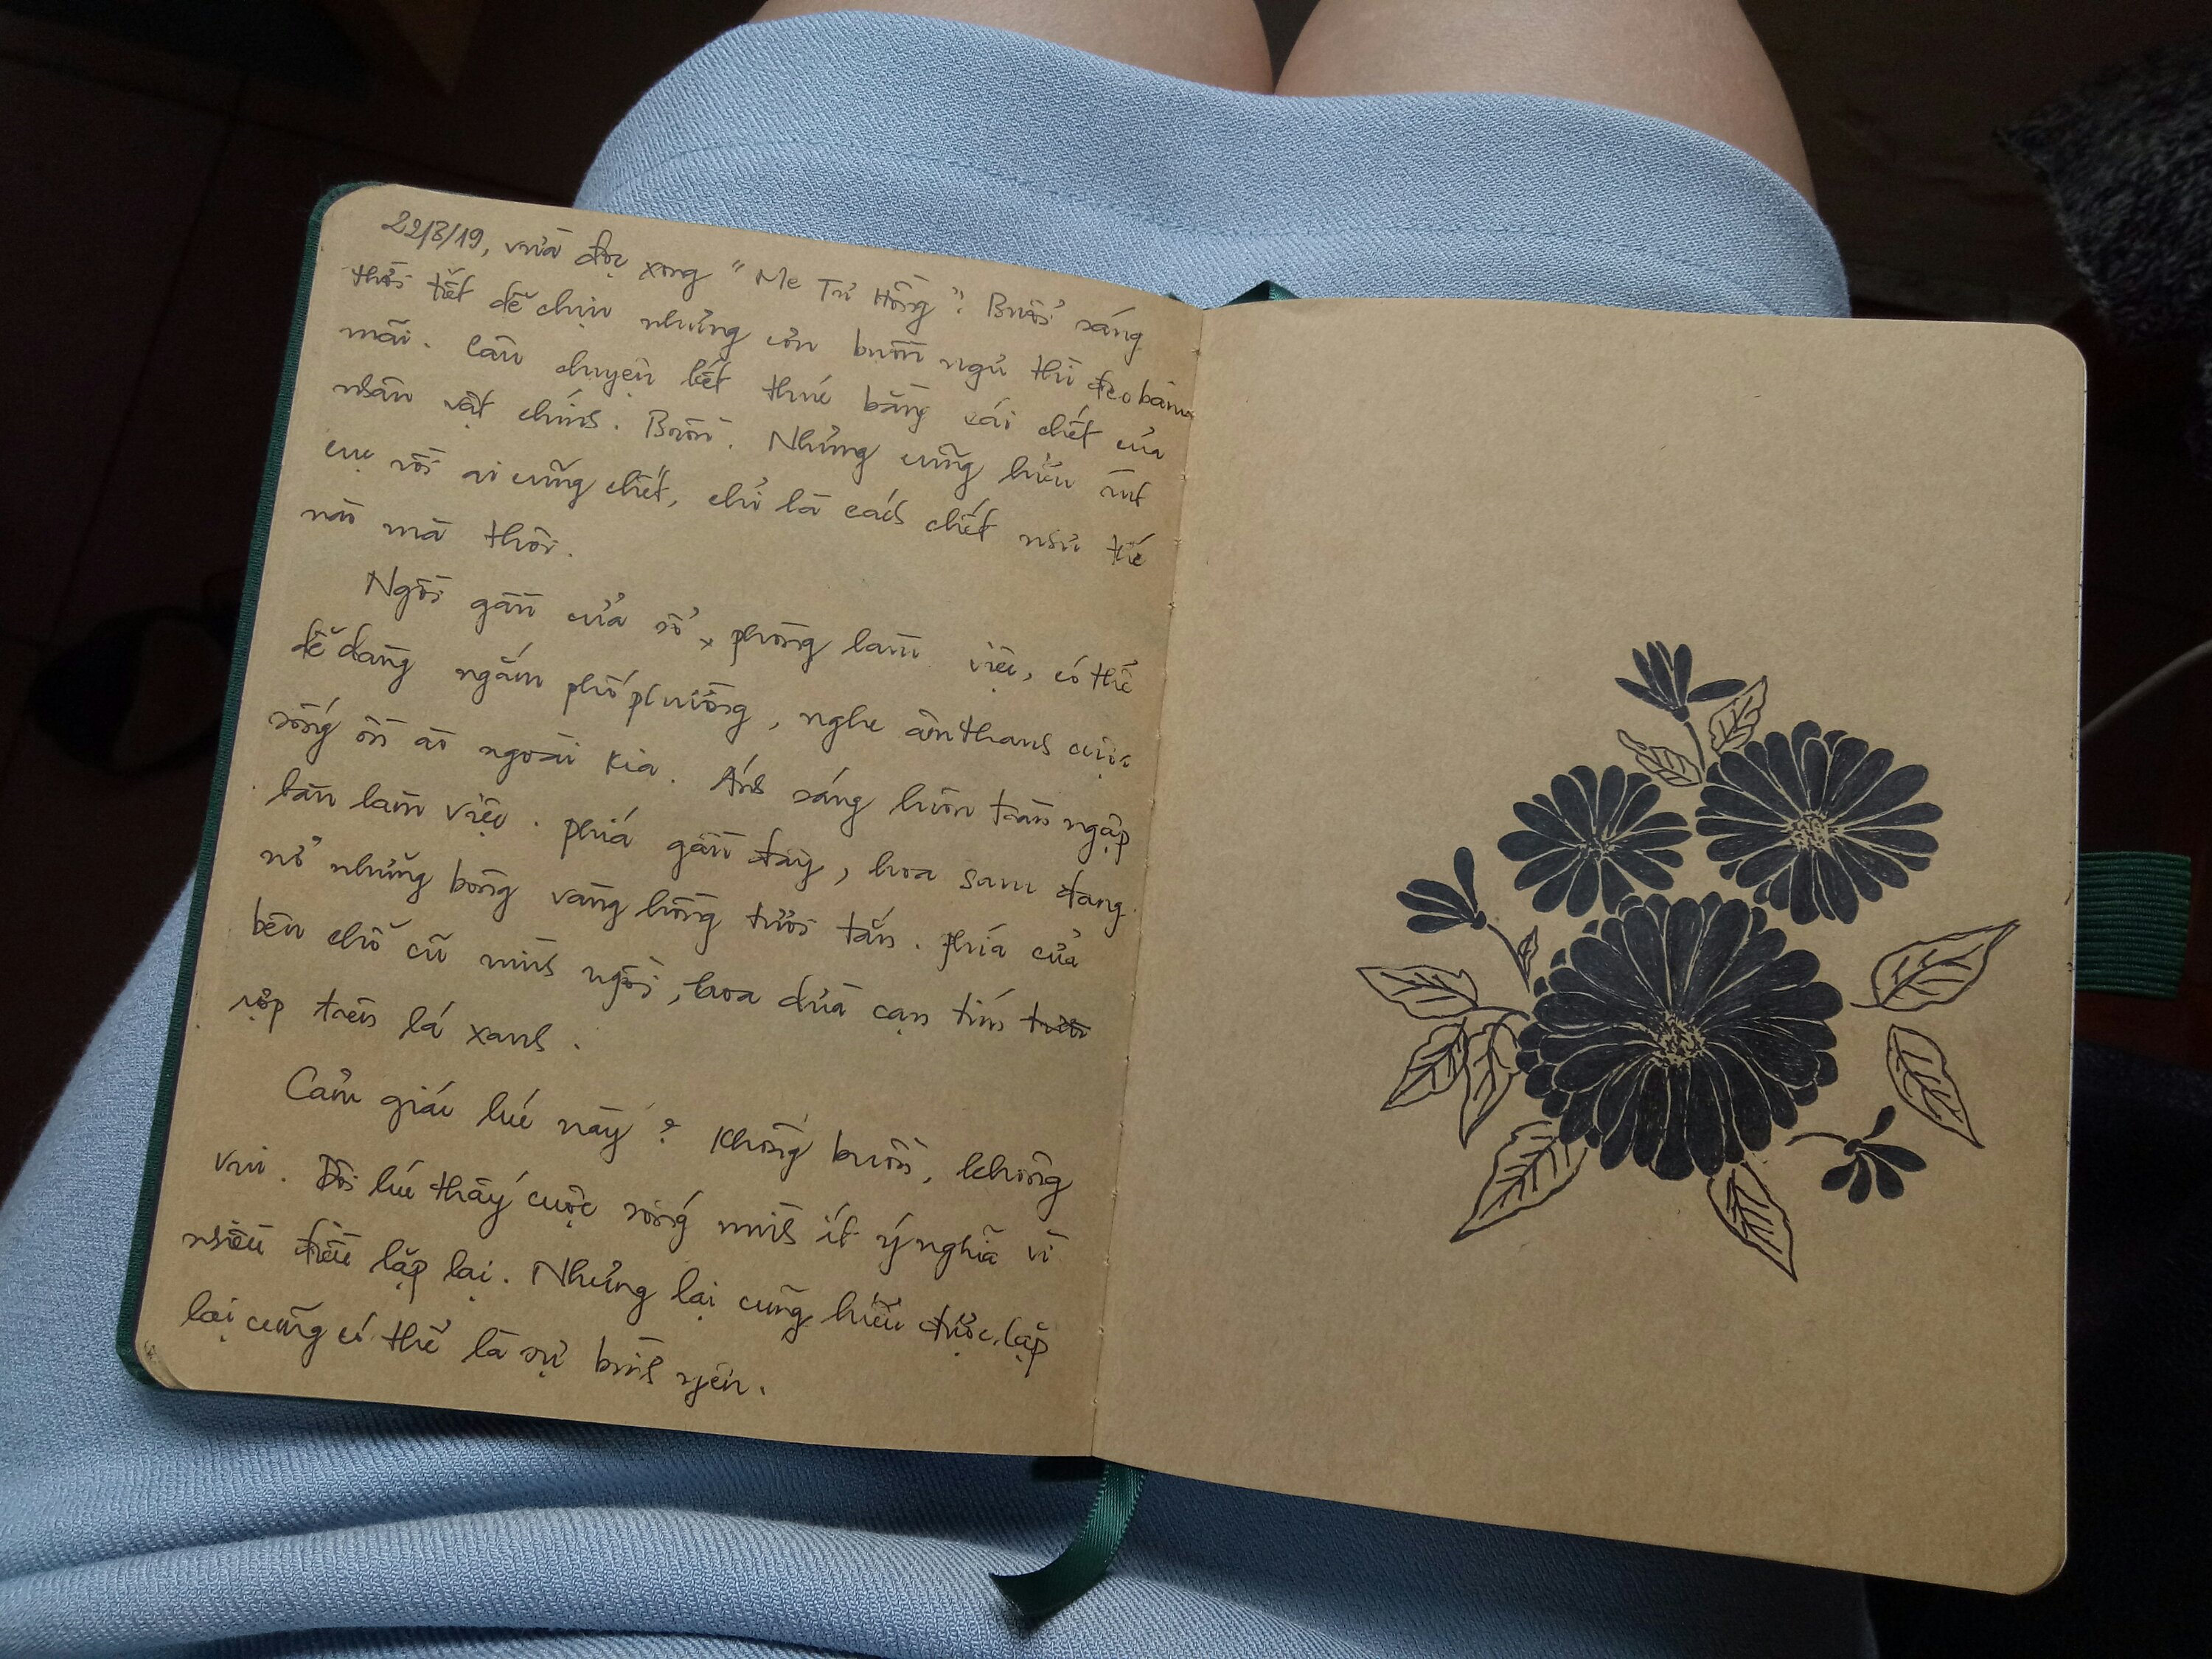 22/3/19, vừa đọc xong "Me Tư Hồng". Buổi sáng
thời tiết dễ chịu nhưng cơn buồn ngủ thì đeo bám
mãi. Câu chuyện kết thúc bằng cái chết của
nhân vật chính. Buồn. Nhưng cũng hiểu rút
cục rồi ai cũng chết, chỉ là cách chết như thế
nào mà thôi.
Ngồi gần cửa sổ phòng làm việc, có thể
dễ dàng ngắm phố phường, nghe âm thanh cuộc
sống ồn ào ngoài kia. Ánh sáng luôn tràn ngập
bàn làm việc. Phía gần đây, hoa sam đang
nở những bông vàng hồng tươi tắn. Phía cửa
bên chỗ cũ mình ngồi, hoa dừa cạn tím
rợp trên lá xanh.
Cảm giác lúc này? Không buồn, không
vui. Đôi lúc thấy cuộc sống mình ít ý nghĩa vì
nhiều điều lặp lại. Nhưng lại cũng hiểu được, lặp
lại cũng có thể là sự bình yên.